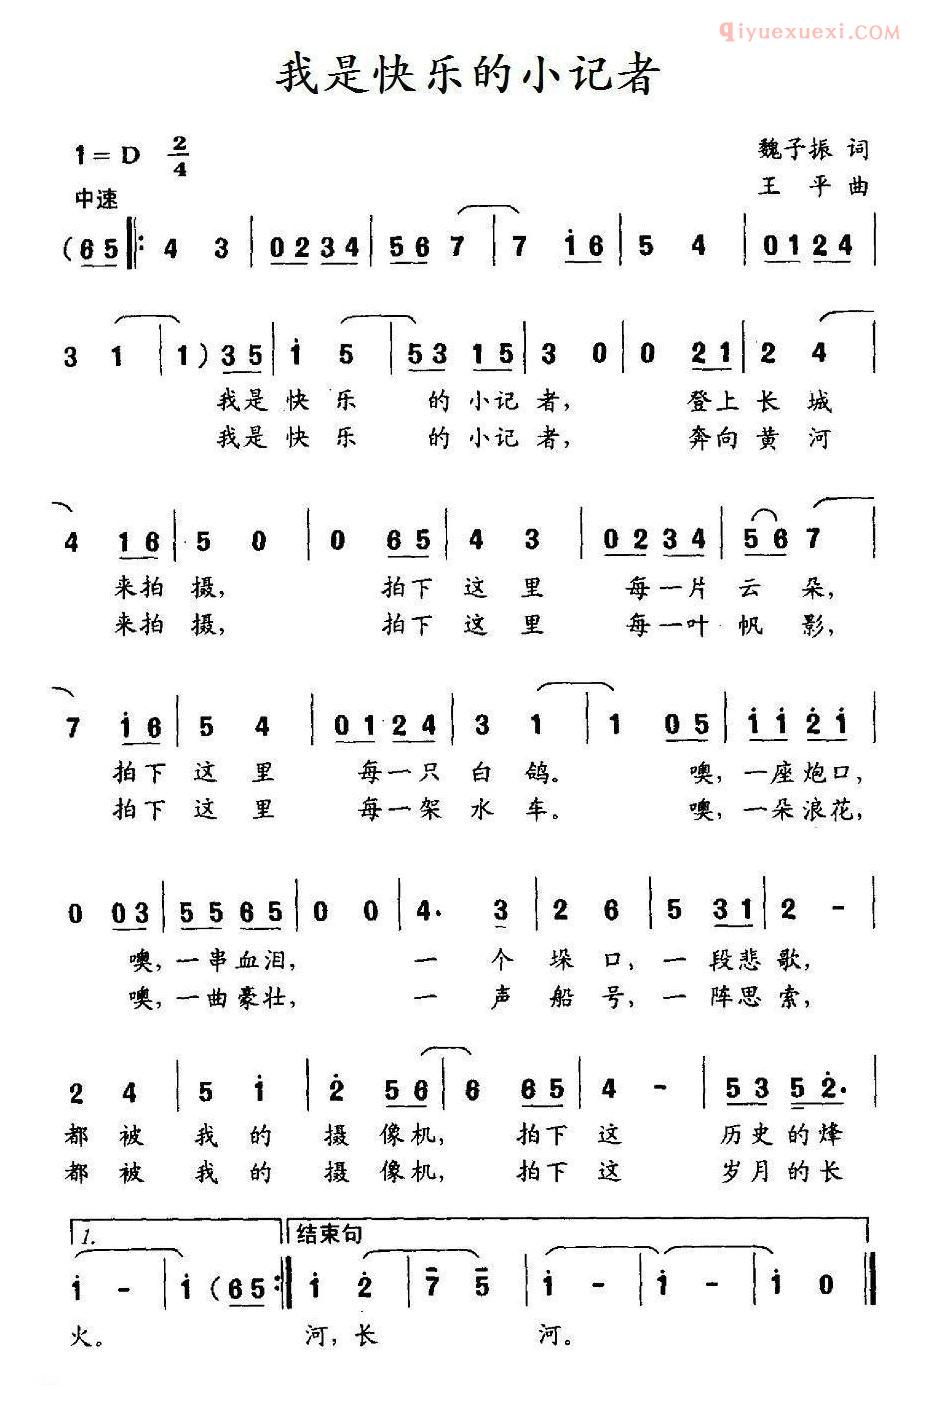 qiyuexuexi.COM
我是快乐的小记者
1=D 2/4
魏子振 词
中速
王 平 曲
(65 |: 4 3 | 0234 | 56 7 | 7 i6 | 5 4 | 0124 |
3 1 | 1) 35 | i 5 | 53 15 | 3 0 | 0 21 | 2 4 |
我是 快 乐 的 小记 者, 登上 长 城
我是 快 乐 的 小记 者, 奔向 黄 河
4 16 | 5 0 | 0 65 | 4 3 | 0234 | 56 7 |
来拍 摄, 拍下 这 里 每一片 云 朵,
来拍 摄, 拍下 这 里 每一叶 帆 影,
7 i6 | 5 4 | 0124 | 3 1 | 1 05 | ii 2i |
拍下 这 里 每一只 白 鸽。 噢, 一座炮口,
拍下 这 里 每一架 水 车。 噢, 一朵浪花,
0 03 | 55 65 | 0 0 | 4. 3 | 2 6 | 5 31 | 2 - |
噢, 一串血泪, 一 个 垛 口, 一 段悲 歌,
噢, 一曲豪壮, 一 声 船 号, 一 阵思 索,
2 4 | 5 i | 2 56 | 6 65 | 4 - | 53 52. |
都 被 我 的 摄 像机, 拍下 这 历史 的烽
都 被 我 的 摄 像机, 拍下 这 岁月 的长
1. 结束句
i - | i (65 :| i 2 | 7 5 | i - | i - | i 0 |
火。 河, 长 河。